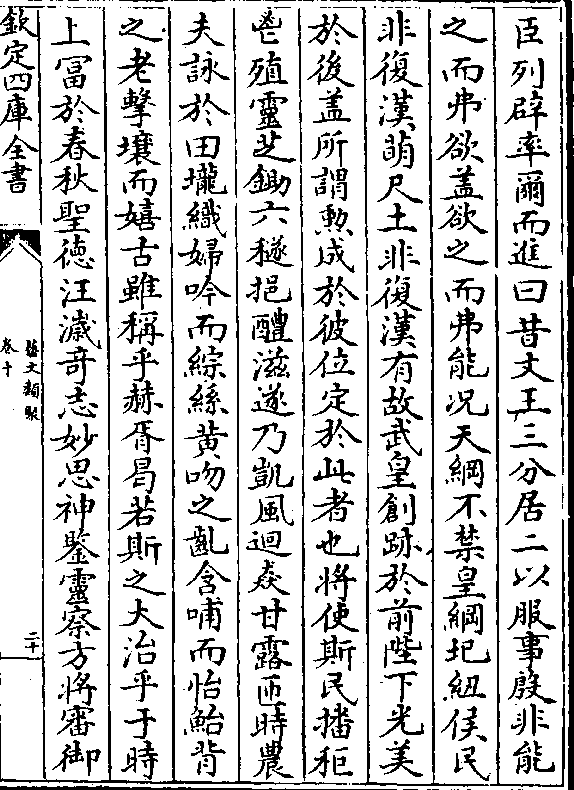 臣列辟率爾而進曰昔文王三分居二以服事殷非能
之而弗欲蓋欲之而弗能况天網不禁皇綱圮紐侯民
非復漢萌尺土非復漢有故武皇創跡於前陛下光美
於後蓋所謂勲成於彼位定於此者也將使斯民播秬
鬯殖靈芝鋤六穟挹醴滋遂乃凱風迴焱甘露匝時農
夫詠於田壠織婦吟而綜絲黄吻之齓含哺而怡鮐背
之老擊壤而嬉古雖稱乎赫胥曷若斯之大治乎于時
上富於春秋聖徳汪濊竒志妙思神鑒靈察方將審御
欽定四庫全書
藝文類聚
卷十
二十